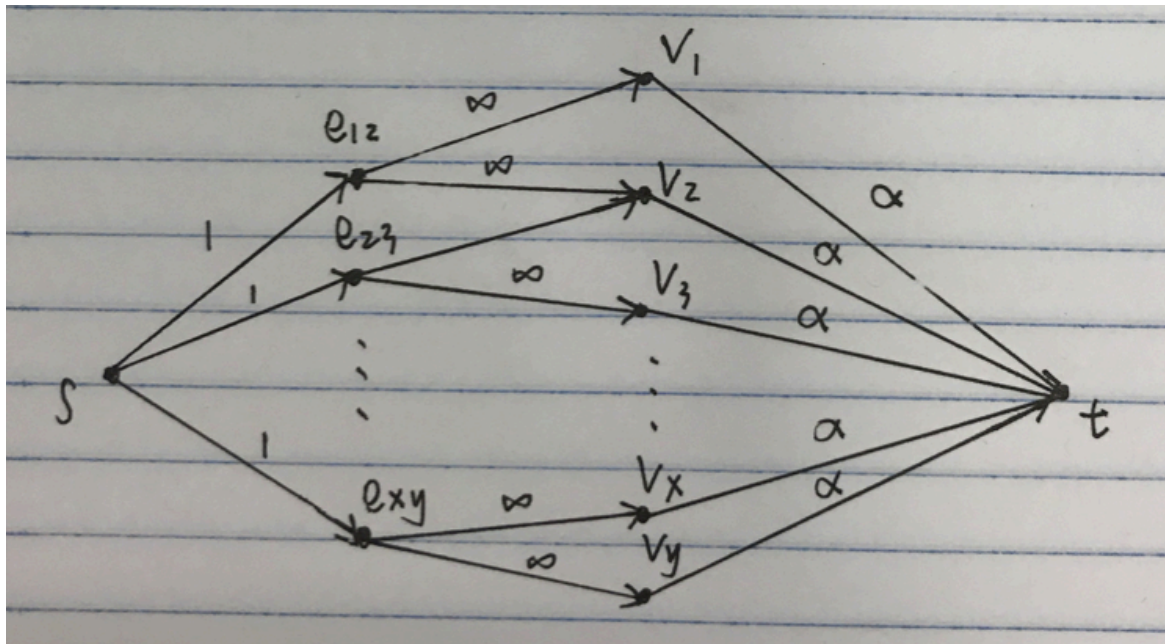 V1
∞
e12
∞
V2
α
1
e23
α
∞
V3
1
α
S
t
1
α
exy
∞
Vx
α
∞
Vy